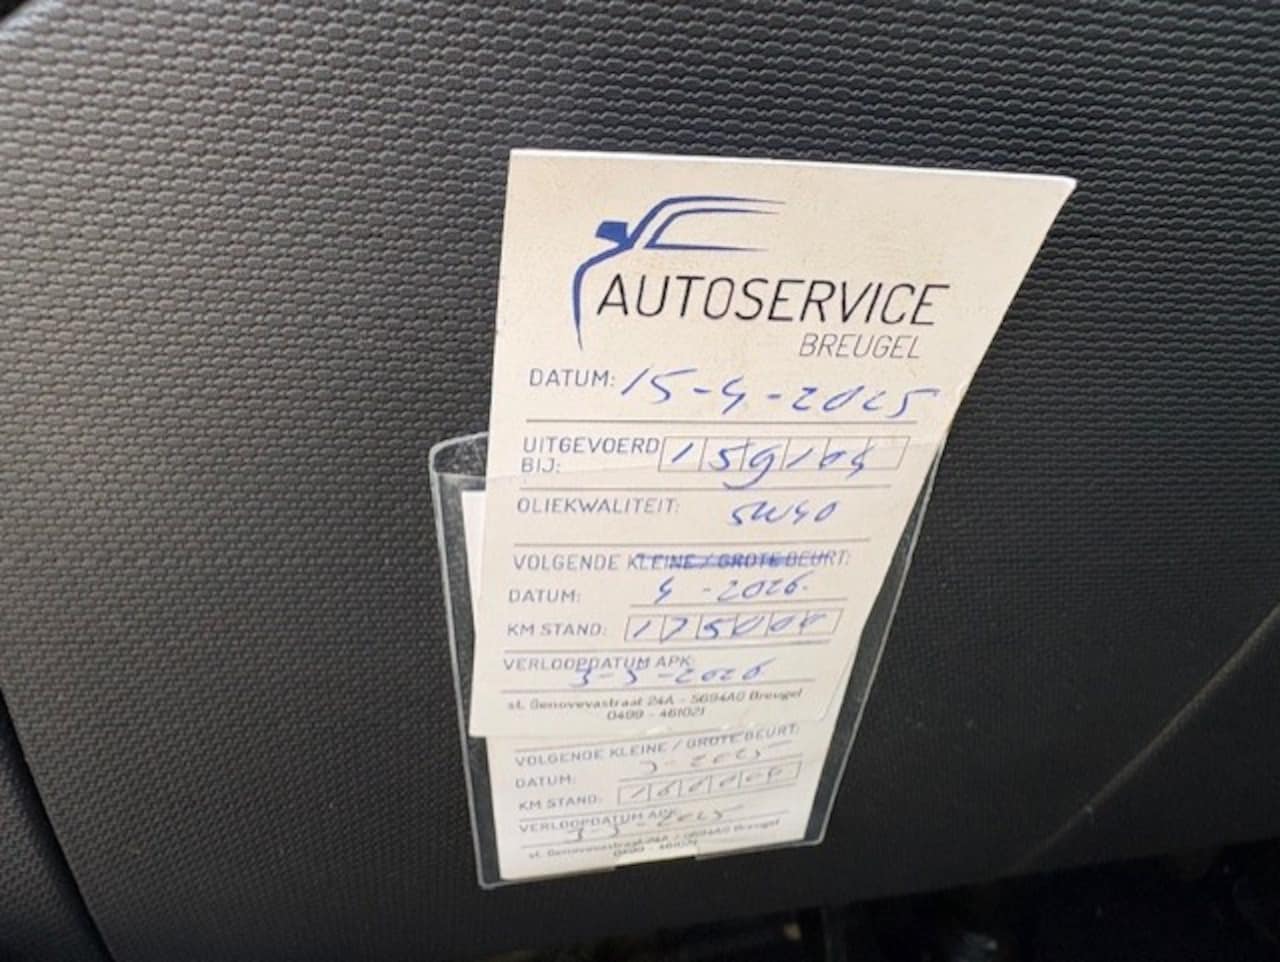 AUTOSERVICE
BREUGEL
DATUM: 15-4-2025
UITGEVOERD
BIJ: 159104
OLIEKWALITEIT: 5W40
VOLGENDE KLEINE / GROTE BEURT:
DATUM: 4-2026.
KM STAND: 175000
VERLOOPDATUM APK:
3-5-2026
st. Genovevastraat 24A - 5694AG Breugel
0499 - 461021
VOLGENDE KLEINE / GROTE BEURT:
DATUM: 3-2025
KM STAND: 160000
VERLOOPDATUM APK:
3-5-2025
st. Genovevastraat 24A / 5694AG Breugel
0499 - 461021